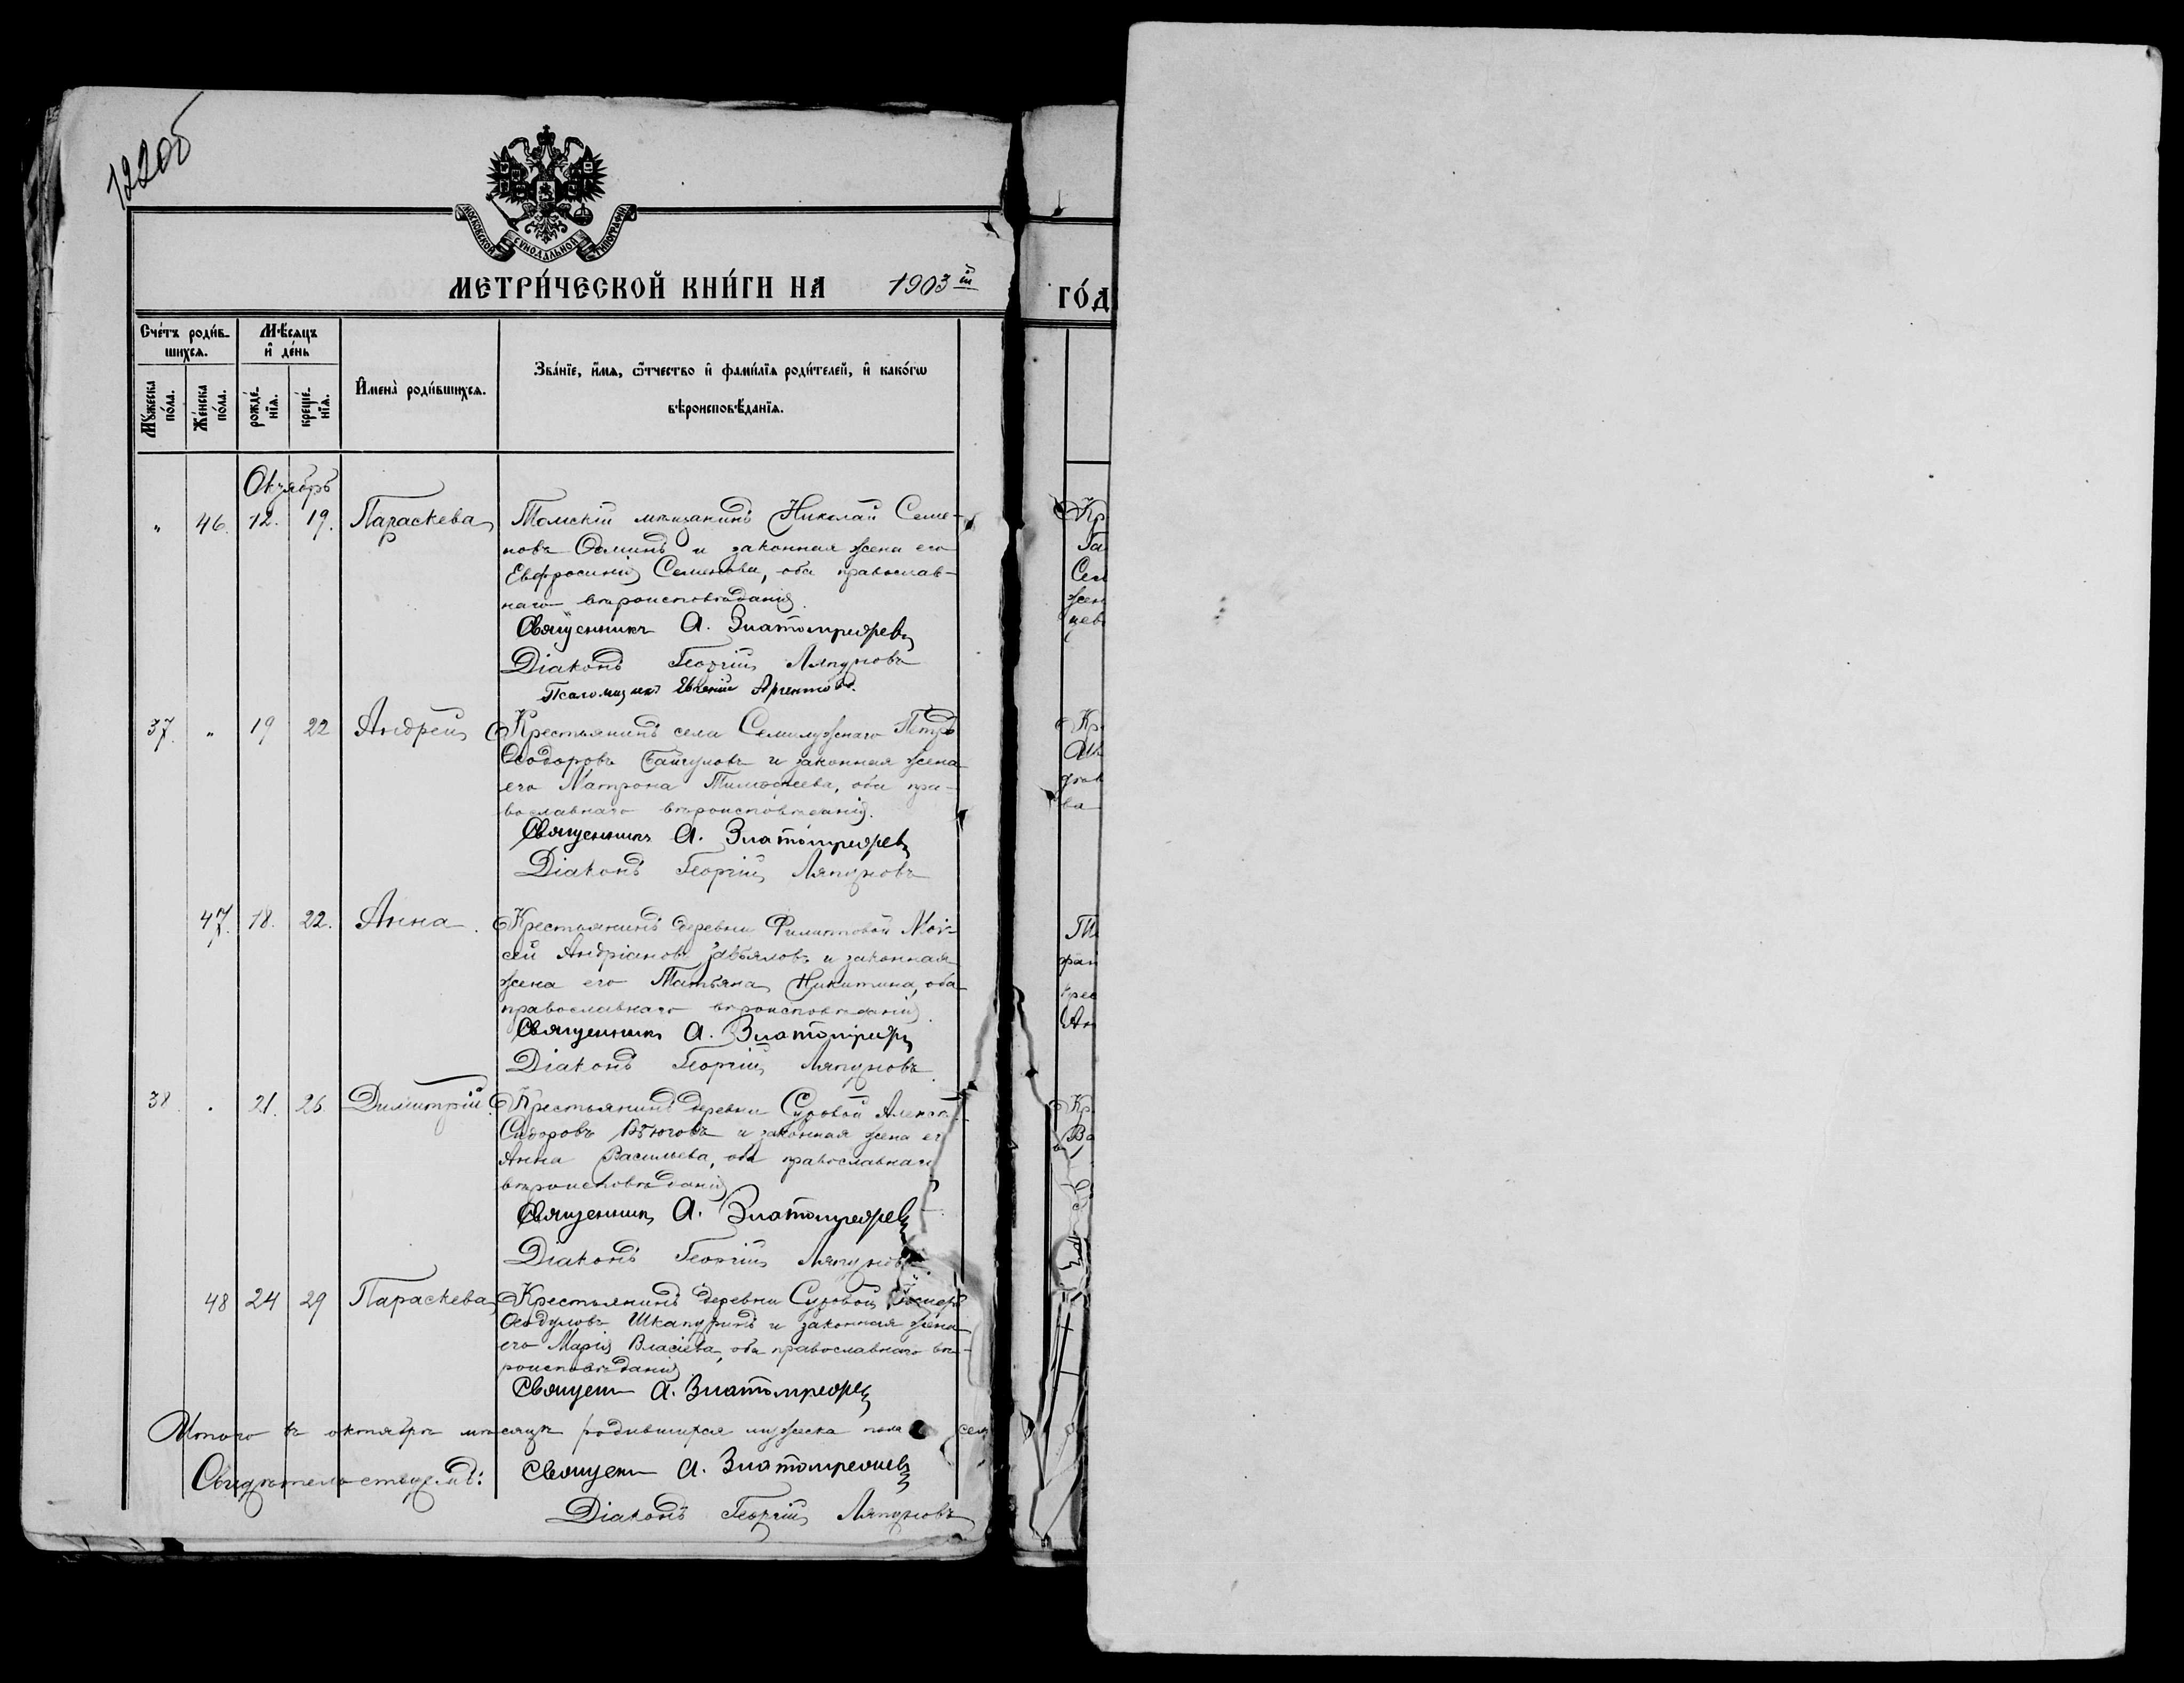 122об
МОСКОВСКОЙ СУНОДАЛЬНОЙ ТИПОГРАФІИ
МЕТРИ́ЧЕСКОЙ КНИ́ГИ НА 1903 й
ГО́Д
Сче́тъ роди́в-
шихсѧ.
Мѣ́сѧцъ
и҆ де́нь
Мꙋ́жеска
по́ла.
Же́нска
по́ла.
рожде́-
нїѧ.
креще́-
нїѧ.
И҆мена̀ роди́вшихсѧ.
Зва́нїе, и҆́мѧ, ѻ҆́тчество и҆ фами́лїѧ роди́телей, и҆ како́гѡ
вѣроисповѣ́данїѧ.
Октябрь
" 46. 12. 19. Параскева Томскій мѣщанинъ Николай Семе-
новъ и законная жена его
Евфросинія Семенова, оба православ-
наго вѣроисповѣданія.
Священникъ А.
Діаконъ Георгій Ляпуновъ
Псаломщикъ Евгеній Аргентовъ.
37. " 19 22 Андрей Крестьянинъ села Семилужнаго Петръ
Ѳеодоровъ и законная жена
его Матрона Тимоѳеева, оба пра-
вославнаго вѣроисповѣданія.
Священникъ А.
Діаконъ Георгій Ляпуновъ
47. 18. 22. Анна. Крестьянинъ деревни Филипповой Мои-
сей Андріановъ Завьяловъ и законная
жена его Татьяна Никитина, оба
православнаго вѣроисповѣданія.
Священникъ А.
Діаконъ Георгій Ляпуновъ.
38. " 21. 26. Димитрій. Крестьянинъ деревни Суровой
Сидоровъ Вьюговъ и законная жена ег
Анна Васильева, оба православнаг
вѣроисповѣданія
Священникъ А.
Діаконъ Георгій Ляпуновъ.
48 24 29 Параскева Крестьянинъ деревни Суровой
Ѳеодуловъ Шкапуринъ и законная жена
его Марія Власіева, оба православнаго вѣ-
роисповѣданія
Священ А.
Итого въ октябрѣ мѣсяцѣ родившихся мужеска пола
Свидѣтельствуемъ: Священ А.
Діаконъ Георгій Ляпуновъ